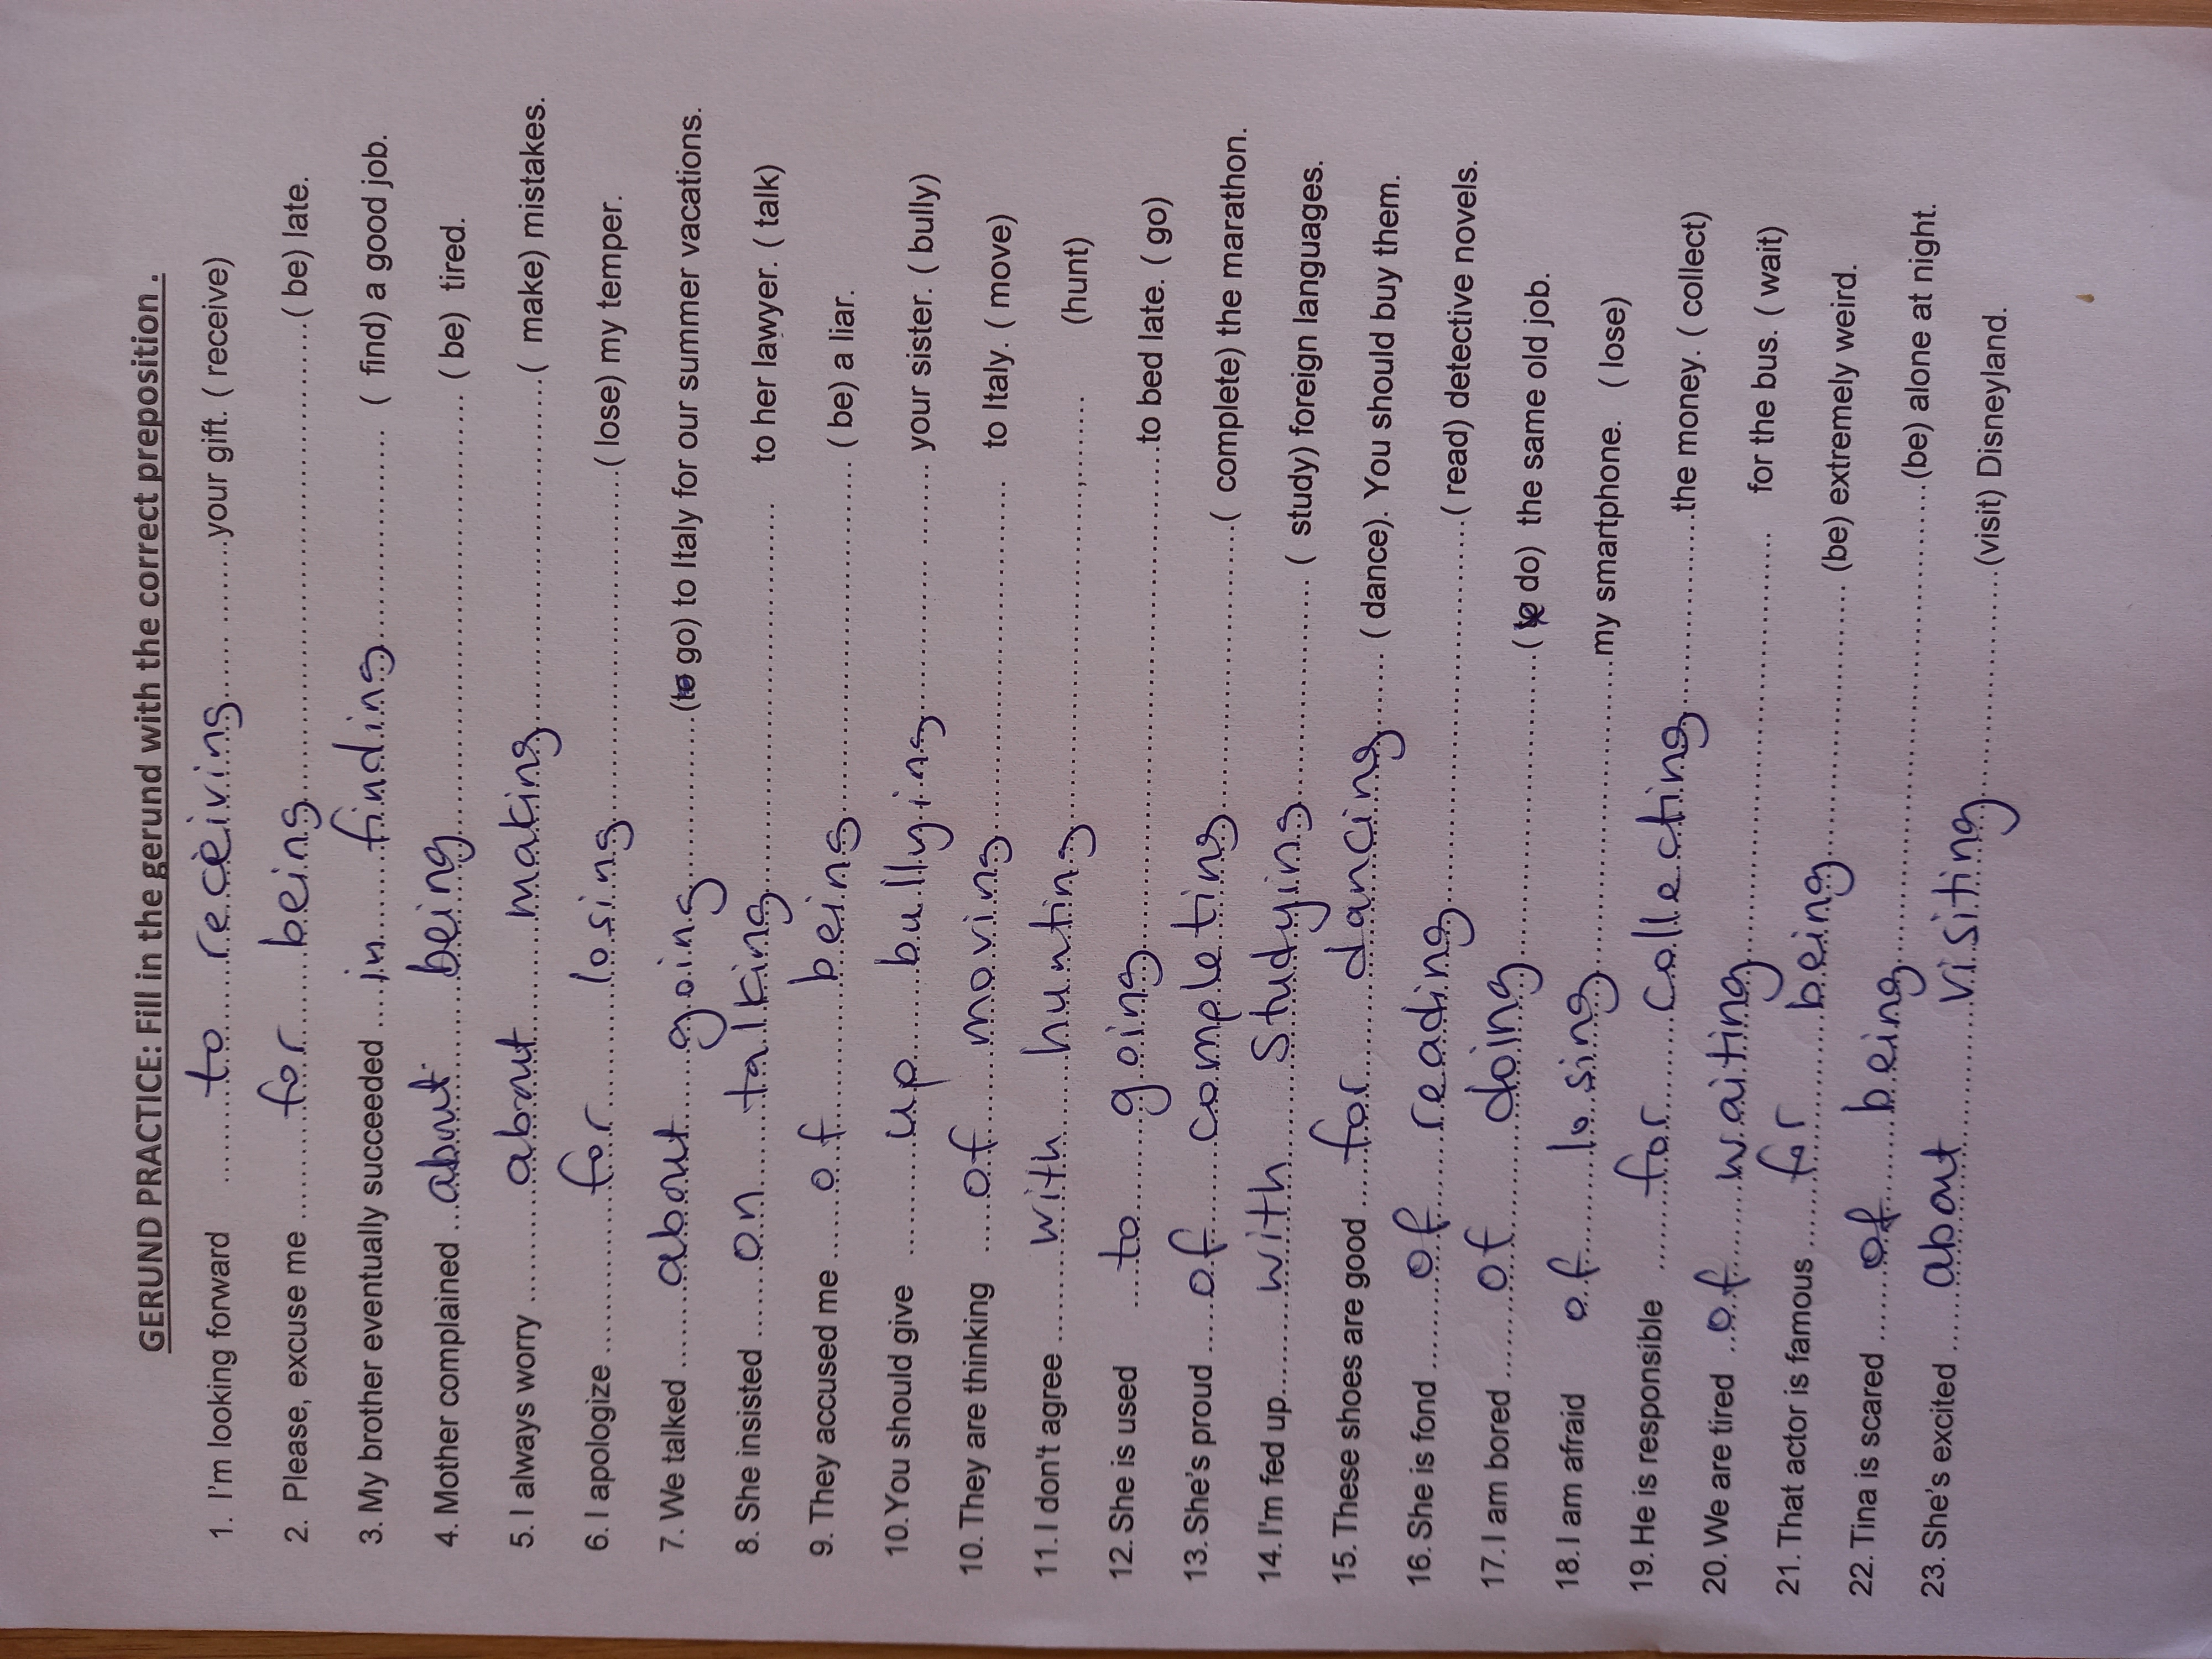 GERUND PRACTICE: Fill in the gerund with the correct preposition .
1. I'm looking forward ..........to....receiving...... ..........your gift. ( receive)
2. Please, excuse me ..........for......being..................................................( be) late.
3. My brother eventually succeeded ....in.......finding........................ ( find) a good job.
4. Mother complained ...about........being............................................. ( be) tired.
5. I always worry ............about........making.....................................( make) mistakes.
6. I apologize ................for...........losing......................................( lose) my temper.
7. We talked ........about......going...................(to go) to Italy for our summer vacations.
8. She insisted .......on.......talking........................................ to her lawyer. ( talk)
9. They accused me ......of..........being..................................... ( be) a liar.
10. You should give ............up......bullying................ ........ your sister. ( bully)
10. They are thinking .....of......moving..................................... to Italy. ( move)
11. I don't agree ..........with.......hunting...................................,....... (hunt)
12. She is used ....to..........going....................................................to bed late. ( go)
13. She's proud ......of......completing..............................( complete) the marathon.
14. I'm fed up.........with.......studying....................... ( study) foreign languages.
15. These shoes are good ....for........dancing...... ( dance). You should buy them.
16. She is fond .........of......reading.........................................( read) detective novels.
17. I am bored .........of........doing................................(to do) the same old job.
18. I am afraid of........losing................................my smartphone. ( lose)
19. He is responsible ........for........collecting....................the money. ( collect)
20. We are tired ...of.......waiting............................................ for the bus. ( wait)
21. That actor is famous .......for..........being............................ (be) extremely weird.
22. Tina is scared ........of.......being.............................................(be) alone at night.
23. She's excited .......about..........visiting.......................(visit) Disneyland.